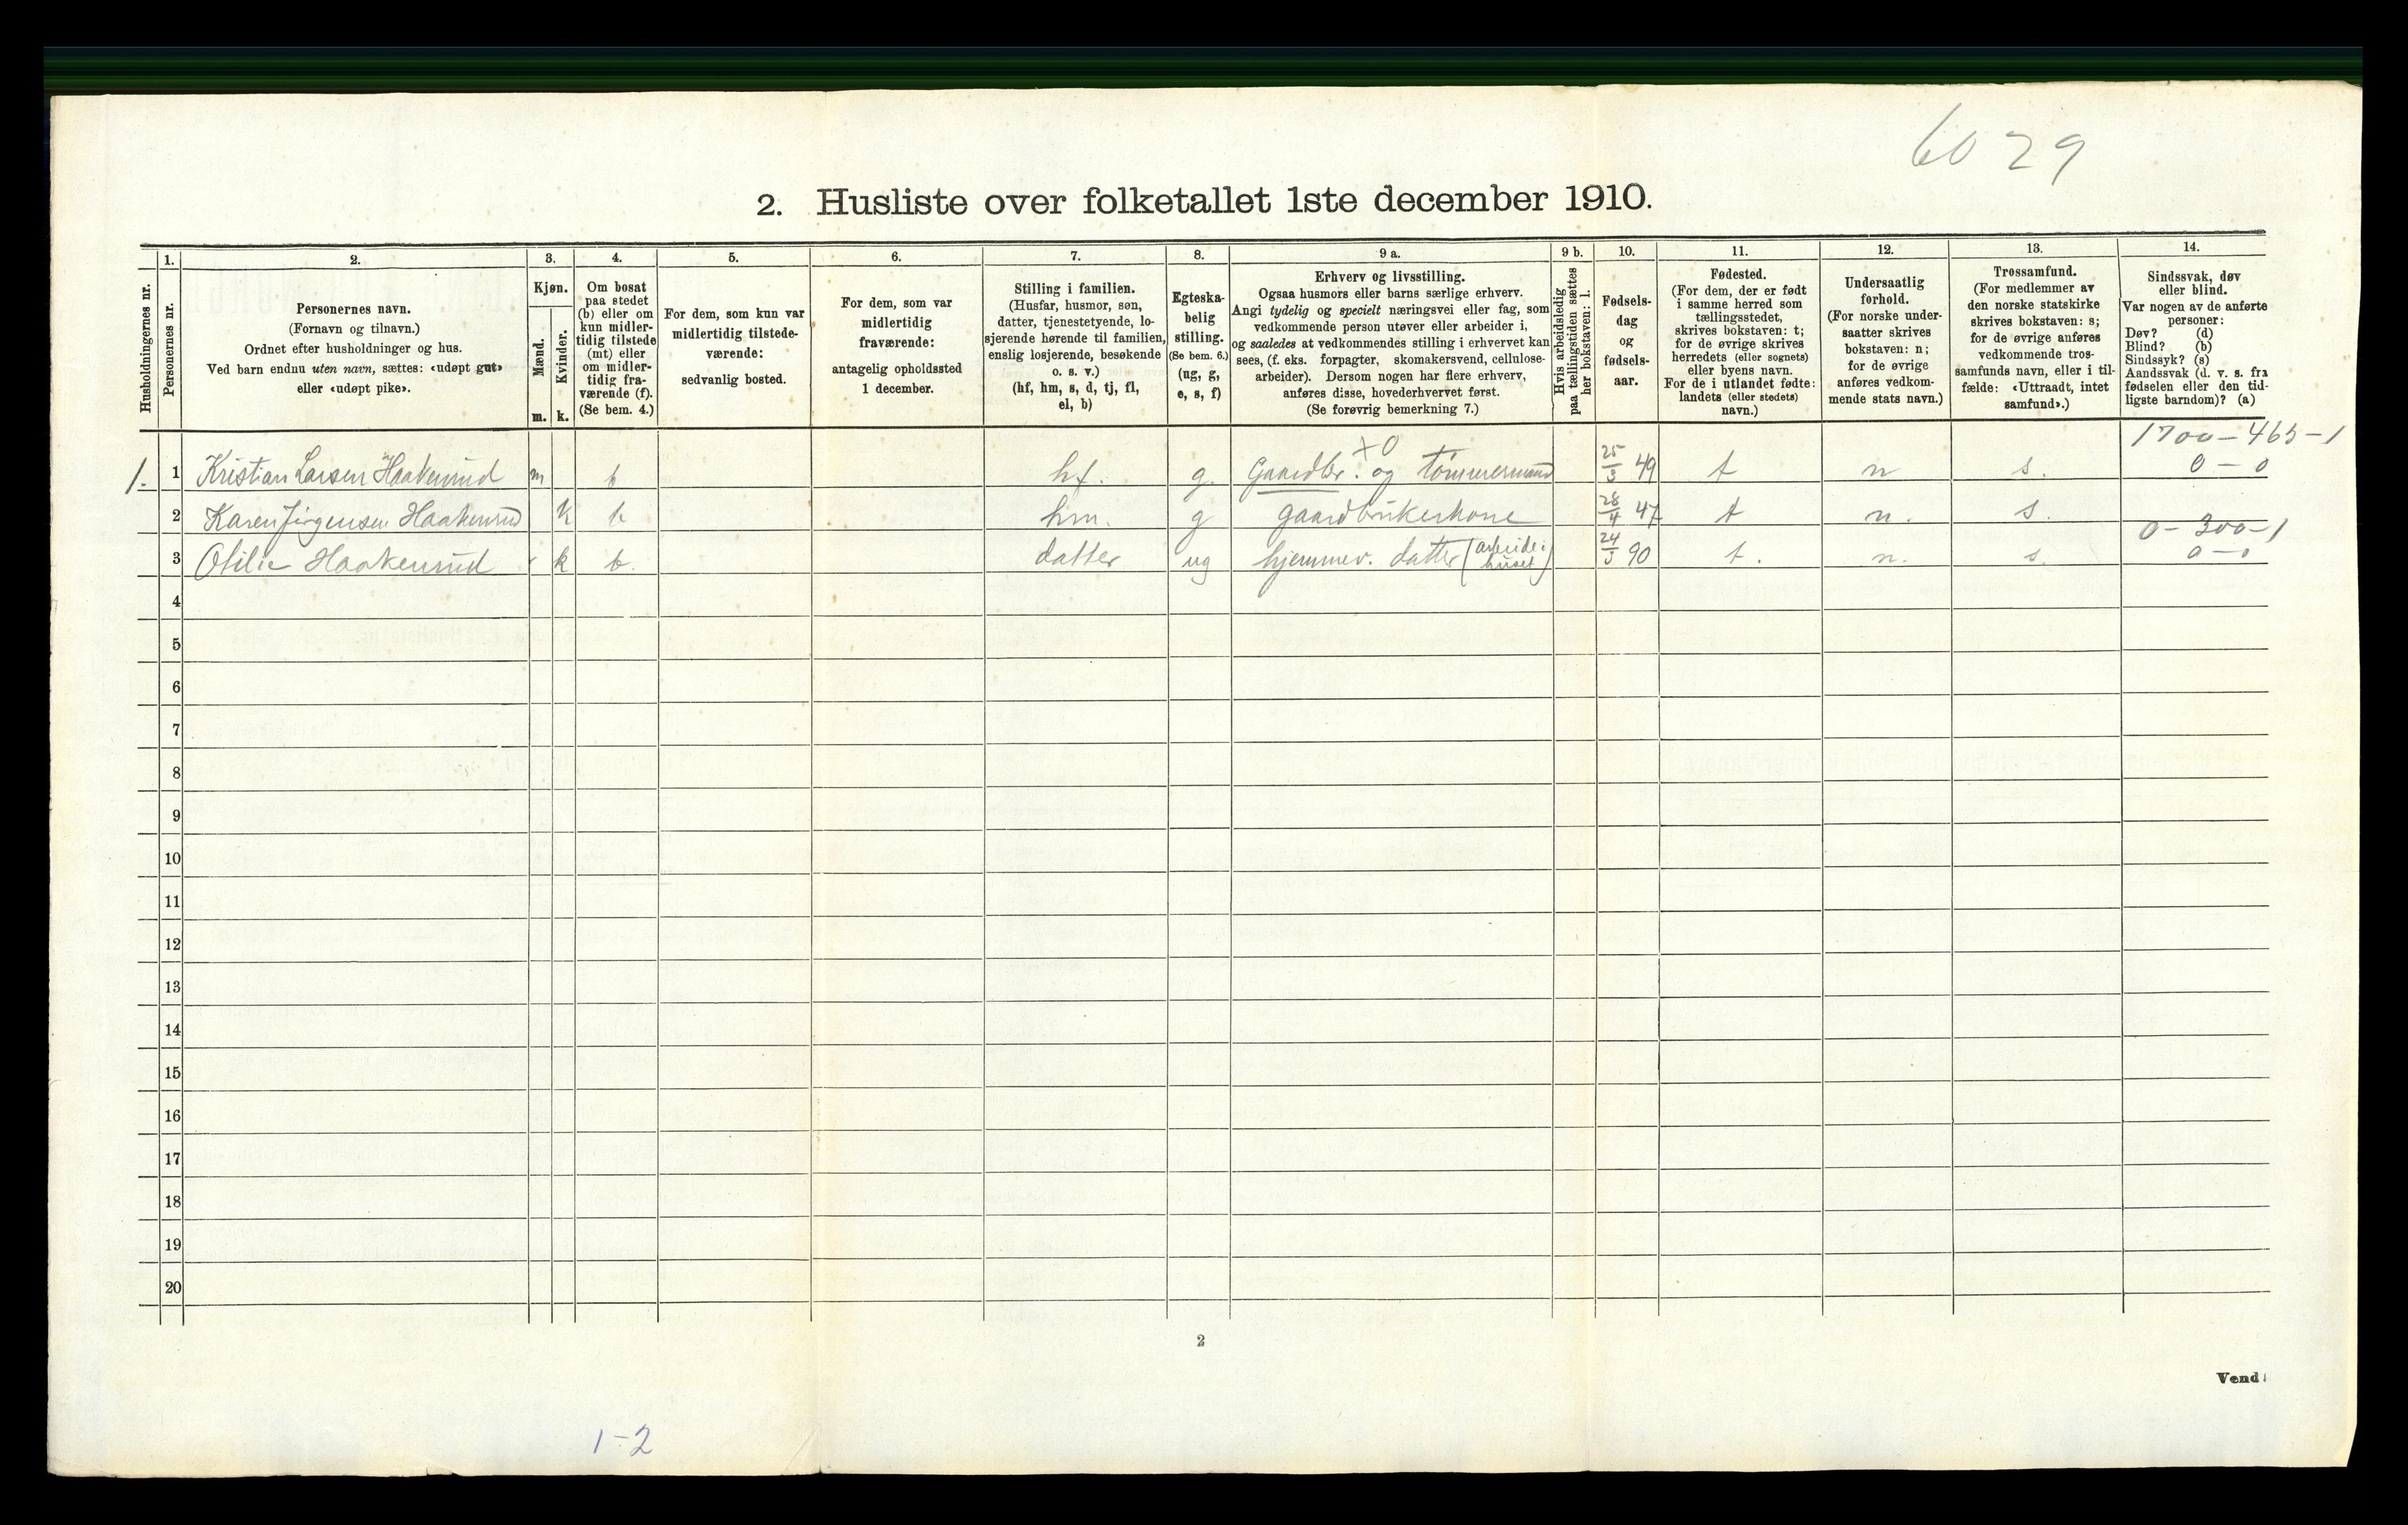 60 29
2. Husliste over folketallet 1ste december 1910.
Husholdningernes nr.
1.
Personernes nr.
2.
Personernes navn.
(Fornavn og tilnavn.)
Ordnet efter husholdninger og hus.
Ved barn endnu uten navn, sættes: «udøpt gut»
eller «udøpt pike».
3.
Kjøn.
Mænd.
m.
Kvinder.
k.
4.
Om bosat
paa stedet
(b) eller om
kun midler-
tidig tilstede
(mt) eller
om midler-
tidig fra-
værende (f).
(Se bem. 4.)
5.
For dem, som kun var
midlertidig tilstede-
værende:
sedvanlig bosted.
6.
For dem, som var
midlertidig
fraværende:
antagelig opholdssted
1 december.
7.
Stilling i familien.
(Husfar, husmor, søn,
datter, tjenestetyende, lo-
sjerende hørende til familien,
enslig losjerende, besøkende
o. s. v.)
(hf, hm, s, d, tj, fl,
el, b)
8.
Egteska-
belig
stilling.
(Se bem. 6.)
(ug, g,
e, s, f)
9 a.
Erhverv og livsstilling.
Ogsaa husmors eller barns særlige erhverv.
Angi tydelig og specielt næringsvei eller fag, som
vedkommende person utøver eller arbeider i,
og saaledes at vedkommendes stilling i erhvervet kan
sees, (f. eks. forpagter, skomakersvend, cellulose-
arbeider). Dersom nogen har flere erhverv,
anføres disse, hovederhvervet først.
(Se forøvrig bemerkning 7.)
9 b.
Hvis arbeidsledig
paa tællingstiden sættes
her bokstaven: l.
10.
Fødsels-
dag
og
fødsels-
aar.
11.
Fødested.
(For dem, der er født
i samme herred som
tællingsstedet,
skrives bokstaven: t;
for de øvrige skrives
herredets (eller sognets)
eller byens navn.
For de i utlandet fødte:
landets (eller stedets)
navn.)
12.
Undersaatlig
forhold.
(For norske under-
saatter skrives
bokstaven: n;
for de øvrige
anføres vedkom-
mende stats navn.)
13.
Trossamfund.
(For medlemmer av
den norske statskirke
skrives bokstaven: s;
for de øvrige anføres
vedkommende tros-
samfunds navn, eller i til-
fælde: «Uttraadt, intet
samfund».)
14.
Sindssvak, døv
eller blind.
Var nogen av de anførte
personer:
Døv? (d)
Blind? (b)
Sindssyk? (s)
Aandssvak (d. v. s. fra
fødselen eller den tid-
ligste barndom)? (a)
XO 1700-465-1
1. 1 Kristian Larsen Haakenrud m b hf. g. Gaardbr. og tømmermand 25/3 49 t n s. 0-0
2 Karen Jørgensen Haakenrud k b hm. g gaardbrukerkone 28/4 47 t n. s.
0-300-1
3 Otilie Haakenrud k b. datter ug hjemmev. datter (arbeide i huset) 24/3 90 t. n. s. 0-0
4
5
6
7
8
9
10
11
12
13
14
15
16
17
18
19
20
2
Vend
1-2